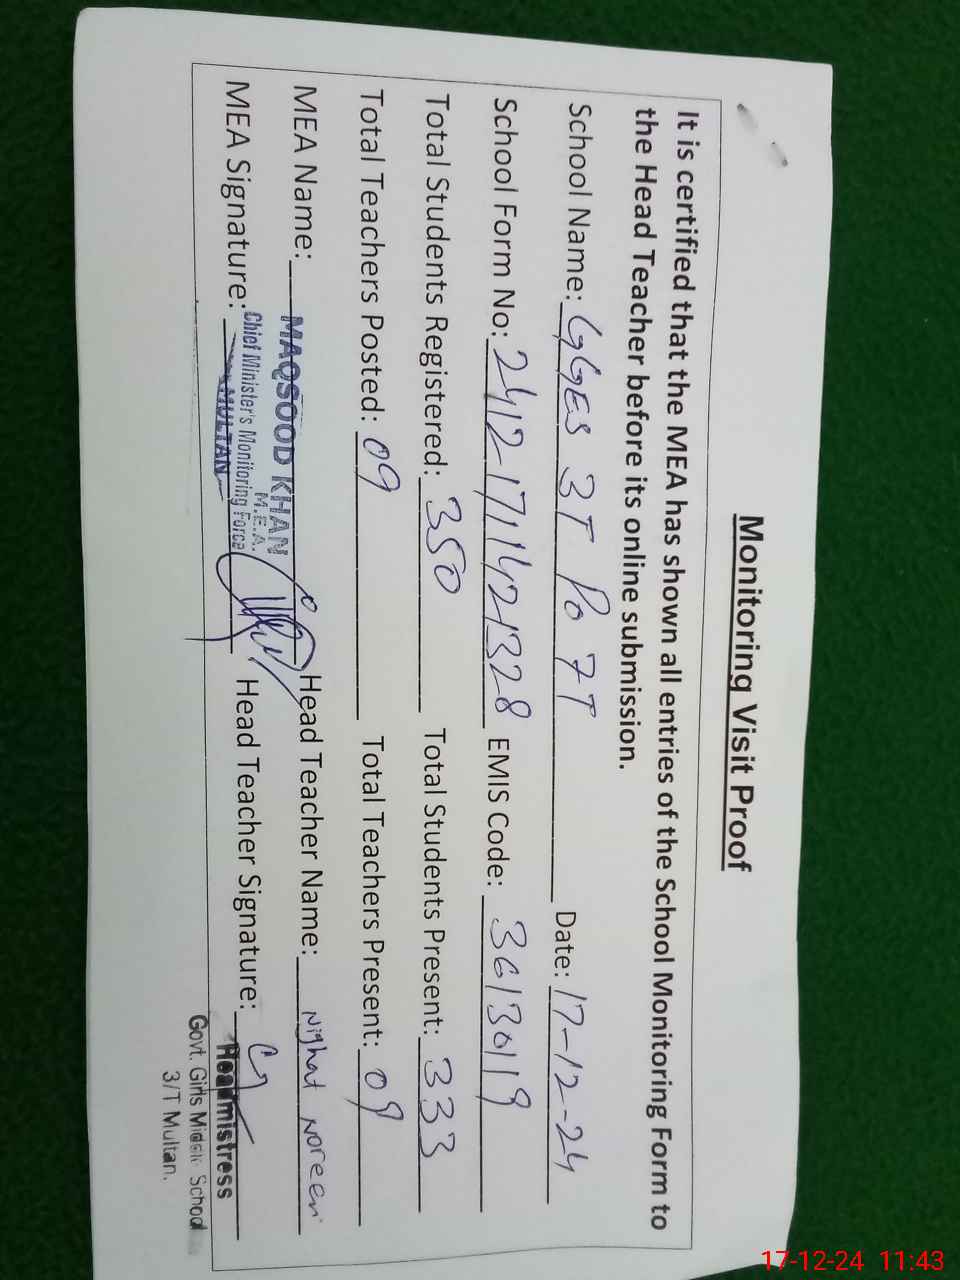 Monitoring Visit Proof
It is certified that the MEA has shown all entries of the School Monitoring Form to
the Head Teacher before its online submission.
School Name: GGES 3T Po 7T Date: 17-12-24
School Form No: 2412-171421328 EMIS Code: 36130119
Total Students Registered: 350 Total Students Present: 333
Total Teachers Posted: 09 Total Teachers Present: 09
MEA Name: MAQSOOD KHAN Head Teacher Name: Nighat Noreen
M.E.A.
Chief Minister's Monitoring Force
MULTAN
MEA Signature: Head Teacher Signature:
Headmistress
Govt. Girls Middle School
3/T Multan.
17-12-24 11:43